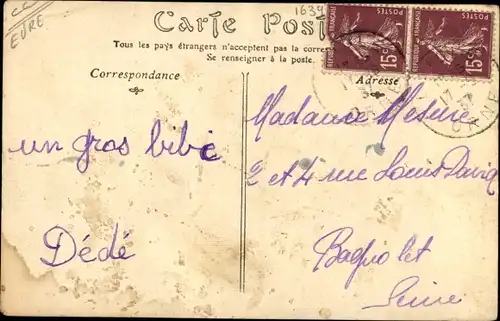 EURE
1639
Carte Post
Tous les pays étrangers n'acceptent pas la corres
Se renseigner à la poste.
Correspondance
Adresse
POSTES 15c RÉPUBLIQUE FRANÇAISE
POSTES 15c
ORNE
un gros bibi
Dédé
Madame Mesure
2 et 4 rue Louis David
Bagnolet
Seine